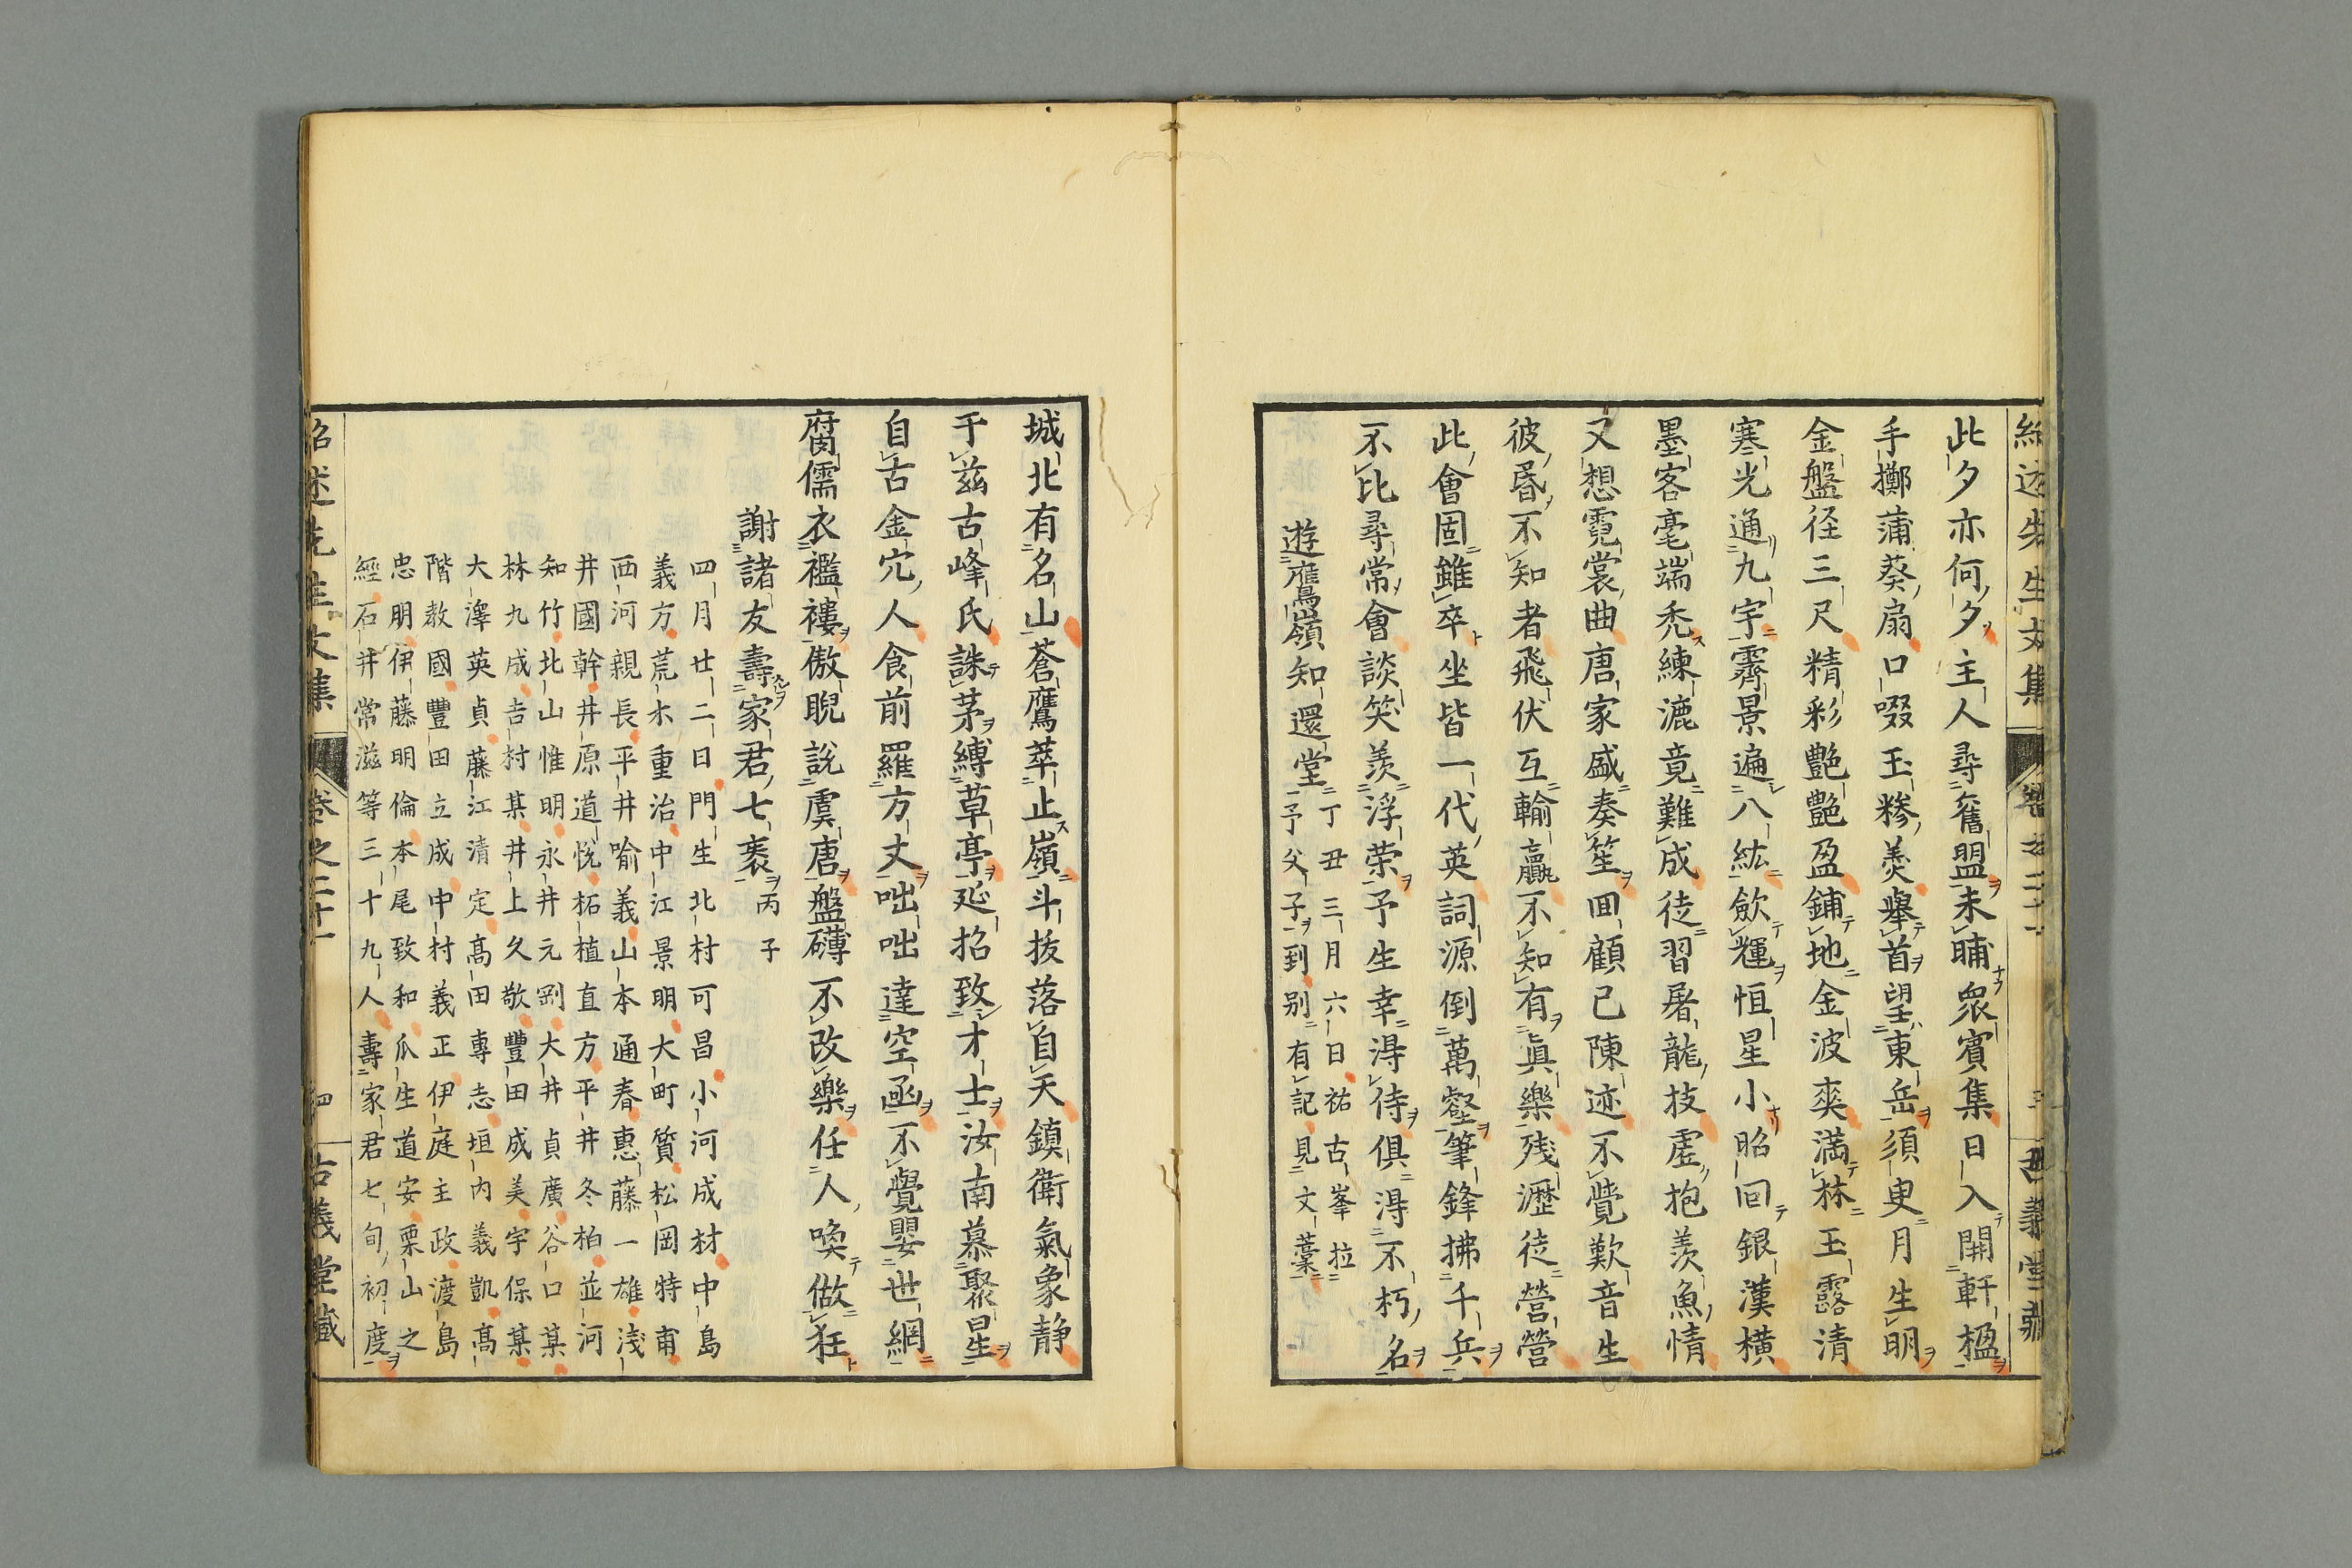 此夕亦何夕主人尋舊盟未晡衆賓集日入開軒楹
手擲蒲葵扇口啜玉糝羹舉首望東岳須臾月生明
金盤径三尺精彩艶艶盈鋪地金波奕滿林玉露清
寒光通九宇霽景遍八紘歛輝恒星小昭回銀漢横
墨客毫端禿練漉竟難成徒習屠龍技虚抱羨魚情
又想霓裳曲唐家盛奏笙囬顧已陳迹不覺歎音生
彼昏不知者飛伏互輸贏不知有眞樂残瀝徒營營
此會固雖卒坐皆一代英詞源倒萬壑筆鋒拂千兵
不比尋常會談笑羨浮荣予生幸淂侍俱淂不朽名
遊鷹嶺知還堂丁丑三月六日祐古峯拉
予父子到別有記見文藁
城北有名山蒼鷹萃止嶺斗拔落自天鎮衛氣象静
于茲古峰氏誅茅縛草亭延招致才士汝南慕聚星
自古金宂人食前羅方丈咄咄達空函不覺嬰世網
腐儒衣襤褸傲睨說虞唐盤礴不改樂任人喚做狂
謝諸友壽家君七袠丙子
四月廿二日門生北村可昌小河成材中島
義方荒木重治中江景明大町質松岡特甫
西河親長平井喻義山本通春惠藤一雄淺
井國幹井原道悦柘植直方平井冬柏並河
知竹北山惟明永井元剛大井貞廣谷口某
林九成吉村某井上久敬豐田成美宇保某
大澤英貞藤江清定髙田專志垣内義凱髙
階敎國豐田立成中村義正伊庭主政渡島
忠朋伊藤明倫本尾致和瓜生道安栗山之
經石井常滋等三十九人壽家君七旬初度
紹述先生文集 卷之二十一 四 古義堂藏